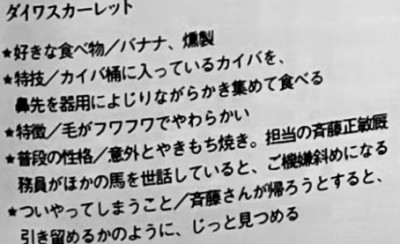 ダイワスカーレット
★好きな食べ物／バナナ、燻製
★特技／カイバ桶に入っているカイバを、
鼻先を器用によじりながらかき集めて食べる
★特徴／毛がフワフワでやわらかい
★普段の性格／意外とやきもち焼き。担当の斉藤正敏厩
務員がほかの馬を世話していると、ご機嫌斜めになる
★ついやってしまうこと／斉藤さんが帰ろうとすると、
引き留めるかのように、じっと見つめる